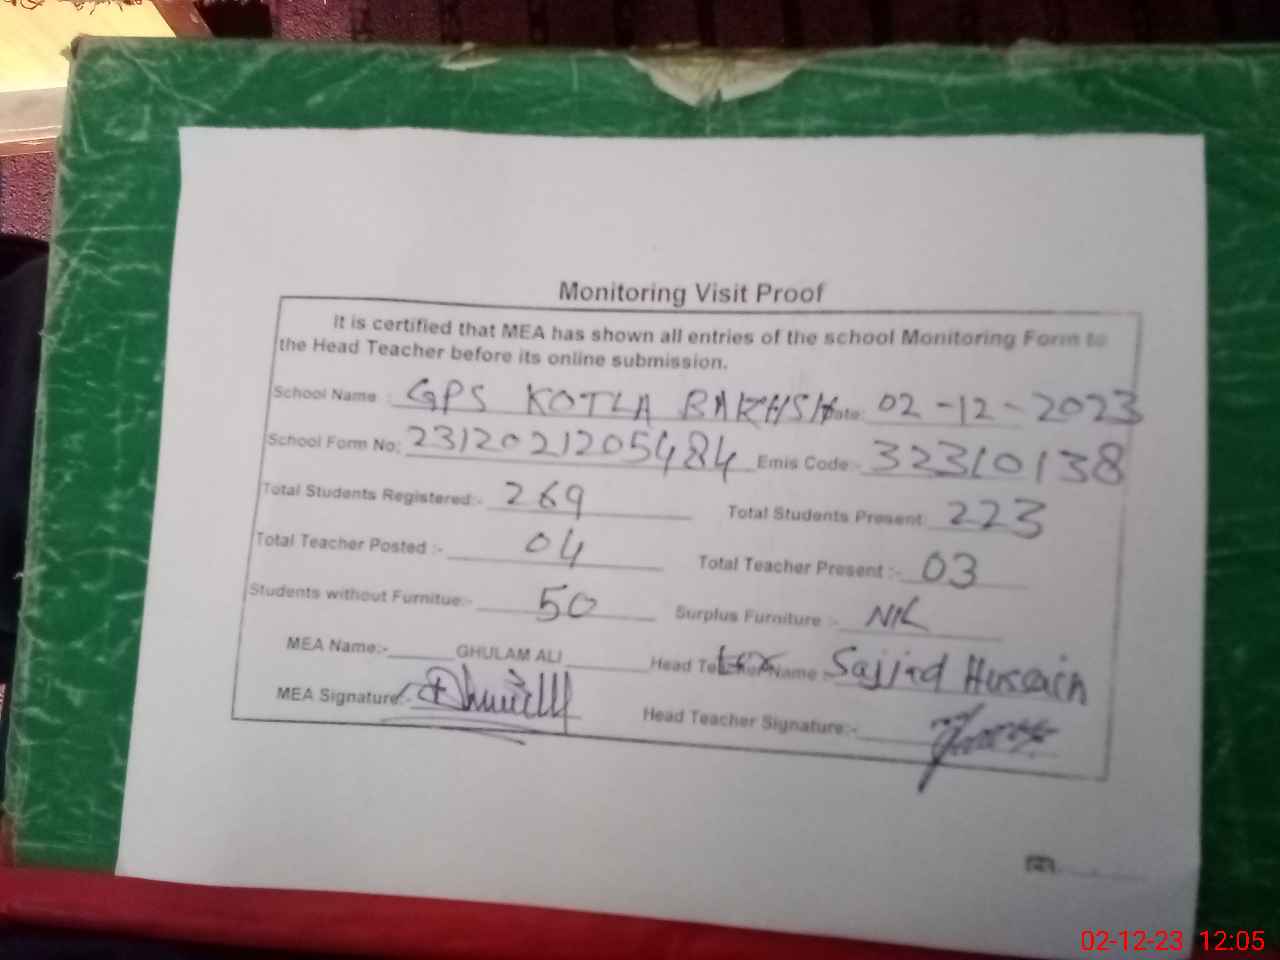 Monitoring Visit Proof
It is certified that MEA has shown all entries of the school Monitoring Form to
the Head Teacher before its online submission.
School Name : GPS KOTLA BAKHSH Date: 02-12-2023
School Form No: 23120212205484 Emis Code :- 32310138
Total Students Registered:- 269 Total Students Present: 223
Total Teacher Posted :- 04 Total Teacher Present :- 03
Students without Furnitue:- 50 Surplus Furniture :- NIL
MEA Name:- GHULAM ALI Head Teacher Name :- Sajjid Hussain
MEA Signature:- Head Teacher Signature:-
02-12-23 12:05